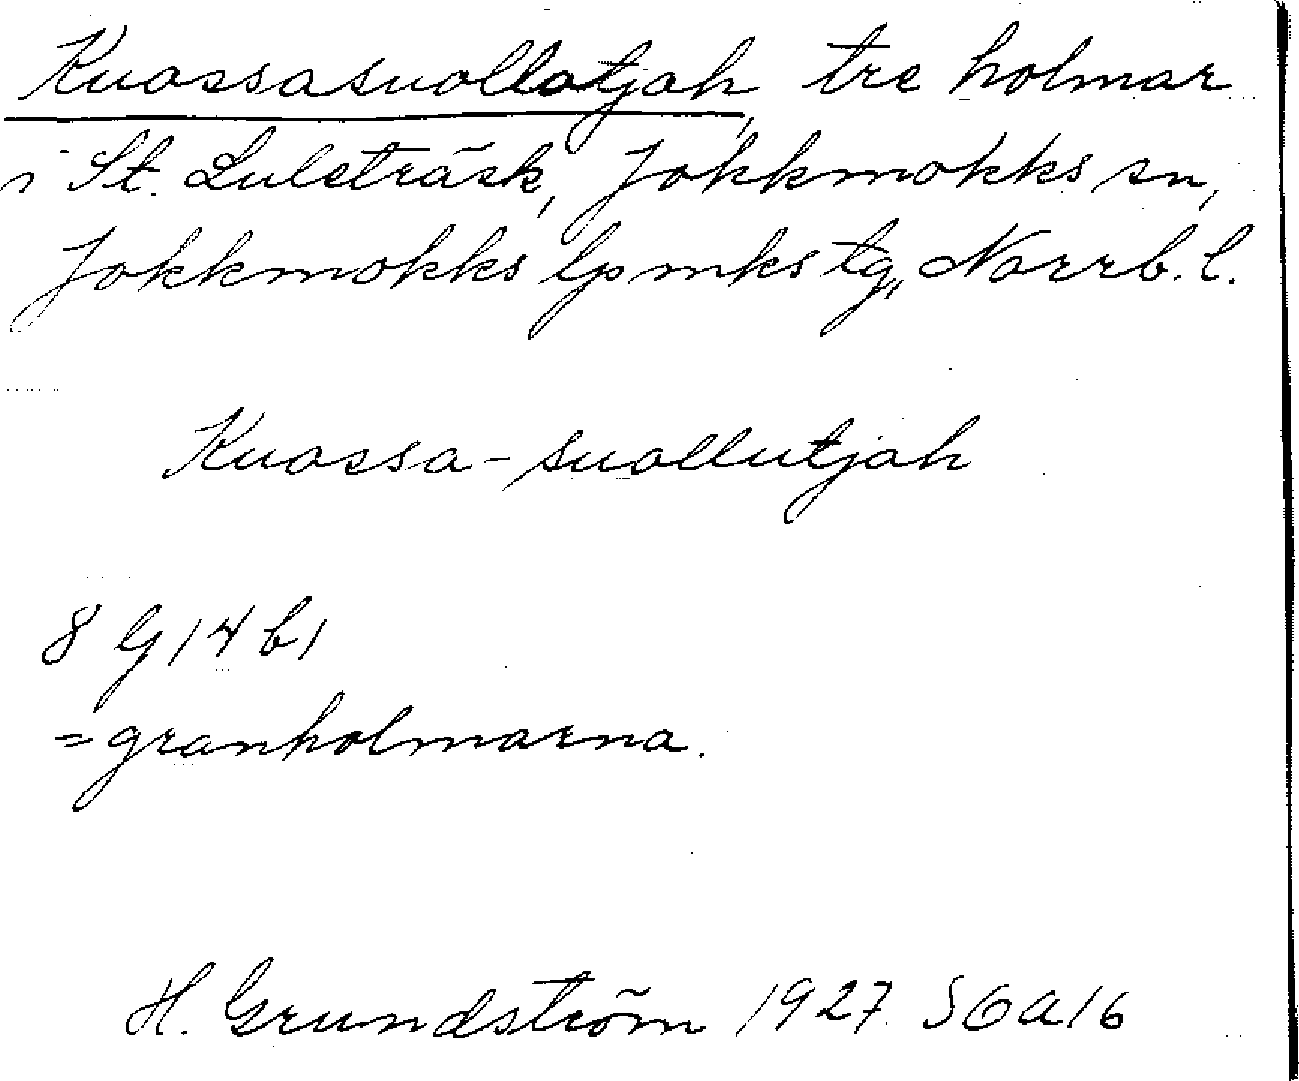 Kuossasuollotjah, tre holmar
i St. Luleträsk, Jokkmokks sn,
Jokkmokks lpmks tg., Norrb. l.
Kuossa-suollutjah
8 G 14 b 1
= granholmarna.
H. Grundström 1927 SOA 16